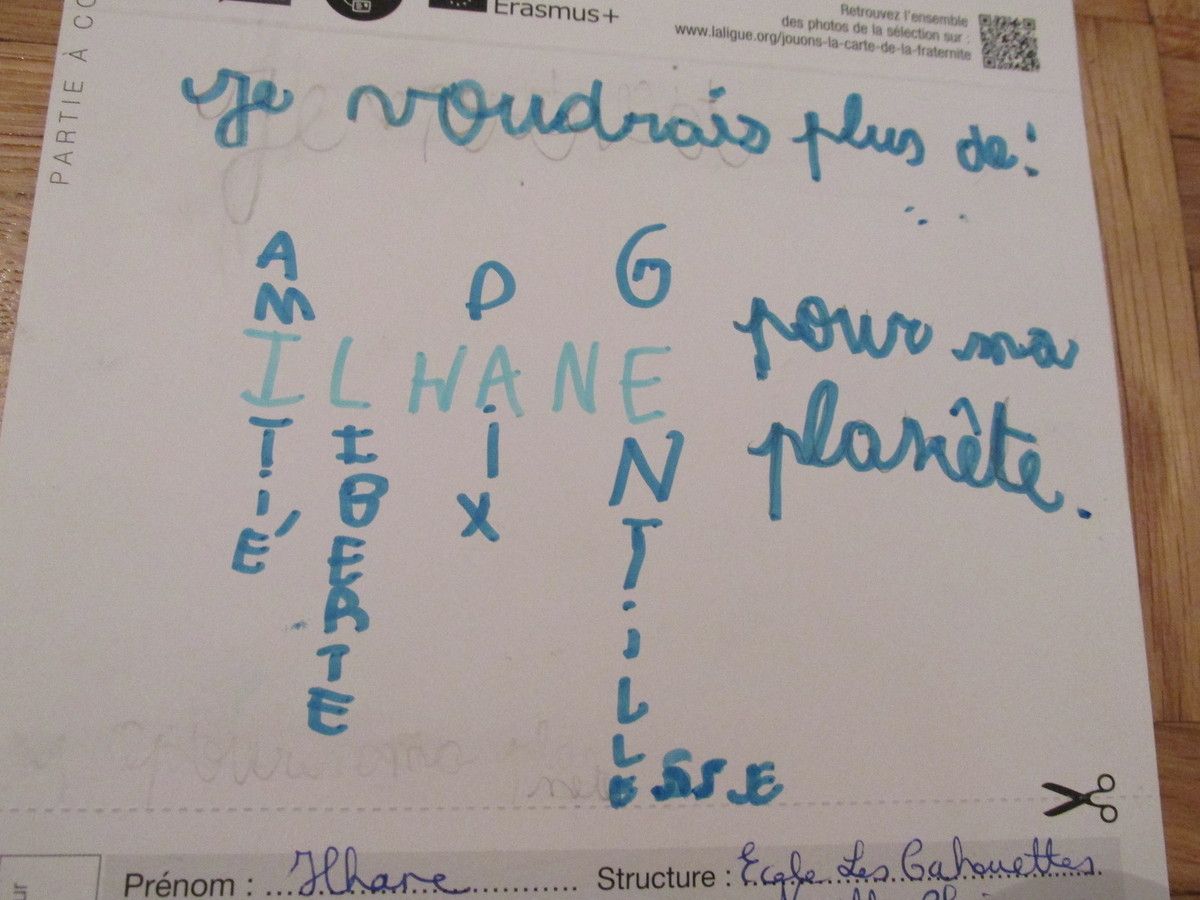 Erasmus+
Retrouvez l'ensemble
des photos de la sélection sur :
www.laligue.org/jouons-la-carte-de-la-fraternite
PARTIE À CO
Je voudrais plus de :
AMITIÉ
LIBERTE
PAIX
GENTILLESSE
ILHANE
pour ma
planète.
pour ma
Prénom : Ilhane
Structure : Ecole Les Cahouettes